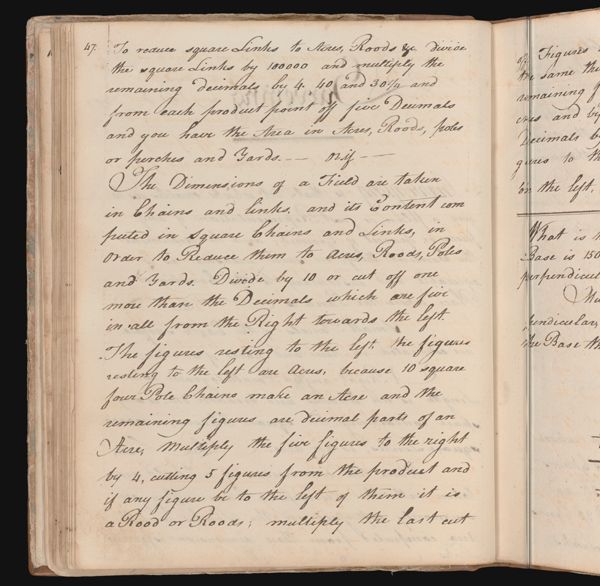 47. To reduce square Links to Acres, Roods &c divide
the square Links by 100000 and multiply the
remaining decimals by 4 40 and 30¼ and
from each product point off five Decimals
and you have the Area in Acres, Roods, poles
or perches and Yards. — or if —
The Dimensions of a Field are taken
in Chains and links, and its Content com
puted in Square Chains and Links, in
Order to Reduce them to Acres, Roods, Poles
and Yards. Divide by 10 or cut off one
more than the Decimals which are five
in all from the Right towards the left
The figures resting to the left the figures
resting to the left are Acres, because 10 square
four Pole Chains make an Acre and the
remaining figures are decimal parts of an
Acre, Multiply the five figures to the right
by 4, cutting 5 figures from the product and
if any figure be to the left of them it is
a Rood or Roods; multiply the last cut
of Figures
the same
remaining
and by
Decimals
to the
on the left,
What is
Base is 150
perpendicul
pendicular,
the Base